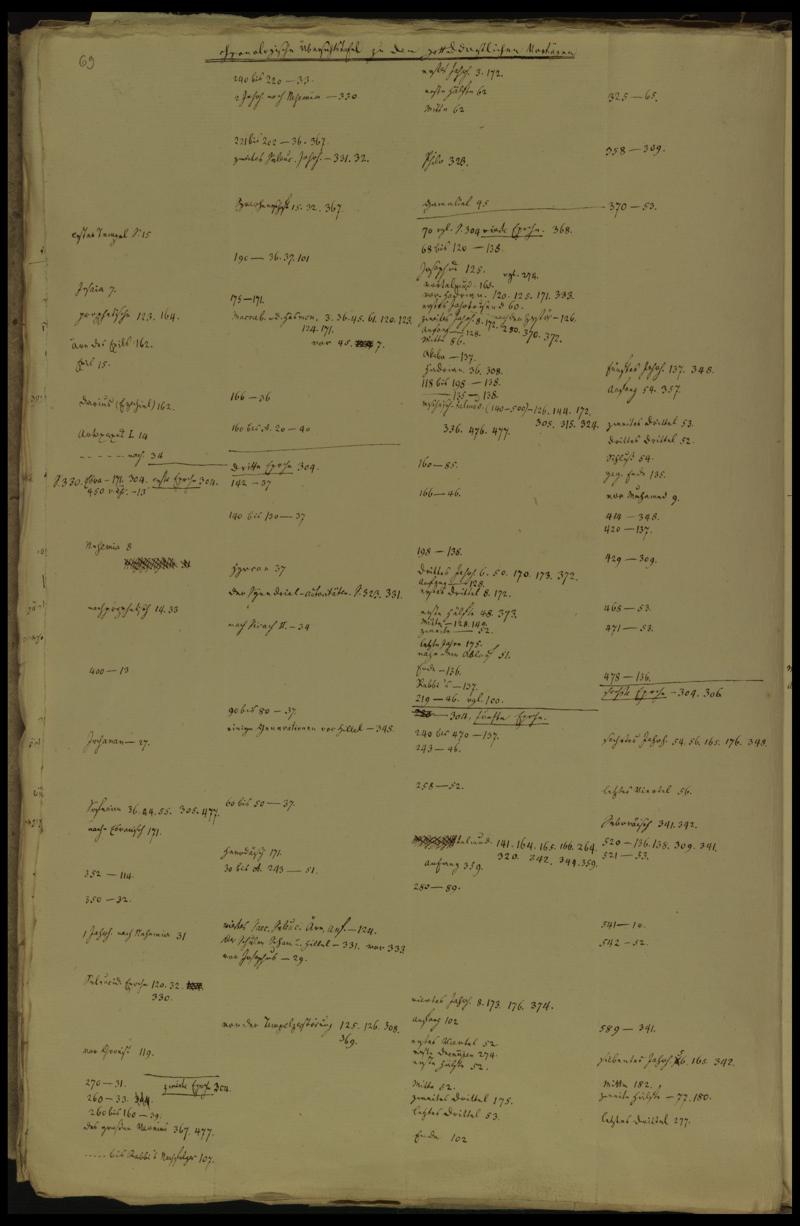 69
Chronologische Übersichtstafel zu den gottesdienstlichen Vorträgen
erster Tempel S. 15
Jesaia 7.
prophetische 123. 164.
Ära des Exils 162.
Exil 15.
Darius (Ezechiel) 162.
Artaxerxes I. 14
nach 34
S. 330. Esra – 171. 304. erste Epoche 304.
450 – 13
Nehemia 8
nachprophetisch 14. 33
400 — 13
Jochanan — 27.
Sofarim 36. 44. 55. 305. 477.
nach-Ebräisch 171.
352 — 114.
350 — 32.
1 Jahrh. nach Nehemia 31
Seleucid. Epoche 120. 32.
330.
vor Christi 119.
270 — 31. zweite Epoche 304.
260 — 33.
260 bis 160 — 39.
der großen 367. 477.
bis Rabbi's Nachfolger 107.
240 bis 220 — 33.
2 Jahrh. nach Nehemia — 330
221 bis 202 — 36. 367.
zweites Seleuc. Jahrh. — 331. 32.
15. 32. 367.
190 — 36. 37. 101
175 — 171.
Maccab. u. d. Hasmon. 3. 36. 45. 61. 120. 123.
124. 171.
vor 45. 7.
166 — 36
160 bis 20 — 40
dritte Epoche 304.
142 — 37
140 bis 130 — 37
Hyrcan 37
der Synedrial-Autorität S. 323. 331.
nach Sirach — 34
90 bis 80 — 37
einige Generationen vor Hillel — 345.
60 bis 50 — 37.
Herodäisch 171.
30 bis 243 — 51.
viertes Saec. Seleuc. Är. Anf. — 124.
der Schulen Scham. u. Hillel — 331. vor 333
vor Josephus — 29.
vor der Tempelzerstörung 125. 126. 308.
369.
erstes Jahrh. 3. 172.
erste Hälfte 62
Mitte 62
Philo 323.
Gamaliel 95
70 vgl. S. 304 vierte Epoche. 368.
68 bis 120 — 138.
Josephus 125. vgl. 274.
165.
vor Hadrian. 120. 125. 171. 333.
erstes Jahrtausend 60.
zweites Jahrh. 8. 172. 280. 370. 372.
Anfang — 128.
Mitte 86.
Akiba — 137.
Hadrian 36. 308.
118 bis 198 — 138.
135 — 138.
Mischisch-Talmud. (140–500) – 126. 144. 172.
305. 315. 324.
336. 476. 477.
160 — 85.
166 — 46.
198 — 138.
Drittes Jahrh. 6. 50. 170. 173. 372.
Anfang — 128.
erstes Drittel 8. 172.
erste Hälfte 48. 373.
Mitte — 128. 140.
zweite — 52.
letzte Jahre 175.
nach dem Ablauf 51.
Ende — 136.
Rabbi's — 137.
219 — 46. vgl. 100.
304. fünfte Epoche.
240 bis 470 — 137.
243 — 46.
258 — 52.
Talmud. 141. 164. 165. 166. 264.
320. 342. 344. 359.
Anfang 359.
280 — 89.
viertes Jahrh. 8. 173. 176. 374.
Anfang 102
erstes Viertel 52
274.
erste Hälfte 52.
Mitte 52.
zweites Drittel 175.
letztes Drittel 53.
Ende 102
325 — 65.
358 — 309.
370 — 53.
fünftes Jahrh. 137. 348.
Anfang 54. 357.
zweites Drittel 53.
drittes Drittel 52.
Schluß 54.
geg. Ende 135.
vor Muhamed 9.
414 — 348.
420 — 137.
429 — 309.
468 — 53.
471 — 53.
478 — 136.
sechste Epoche — 304. 306
sechstes Jahrh. 54. 56. 165. 176. 348.
letztes Viertel 56.
Saboräisch 341. 342.
520 — 136. 138. 309. 341.
521 — 53.
541 — 10.
542 — 52.
589 — 341.
siebentes Jahrh. 56. 165. 342.
Mitte 182.
zweite Hälfte — 77. 180.
letztes Drittel 277.